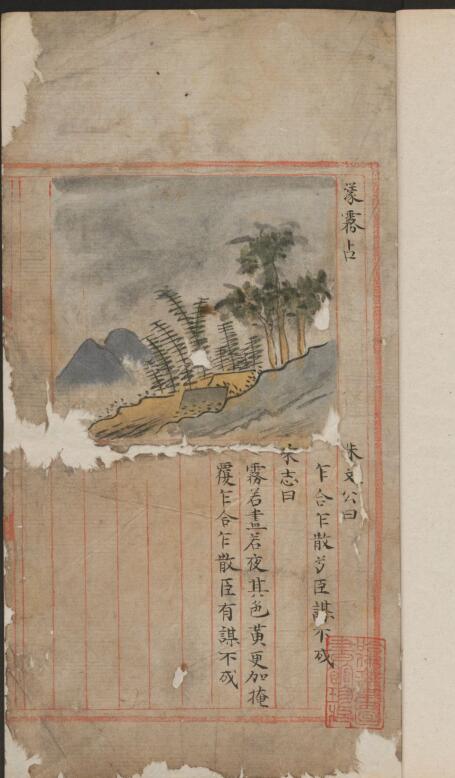 濛霧占
朱文公曰
乍合乍散臣謀不成
宋志曰
霧若晝若夜其色黃更加掩
覆乍合乍散臣有謀不成